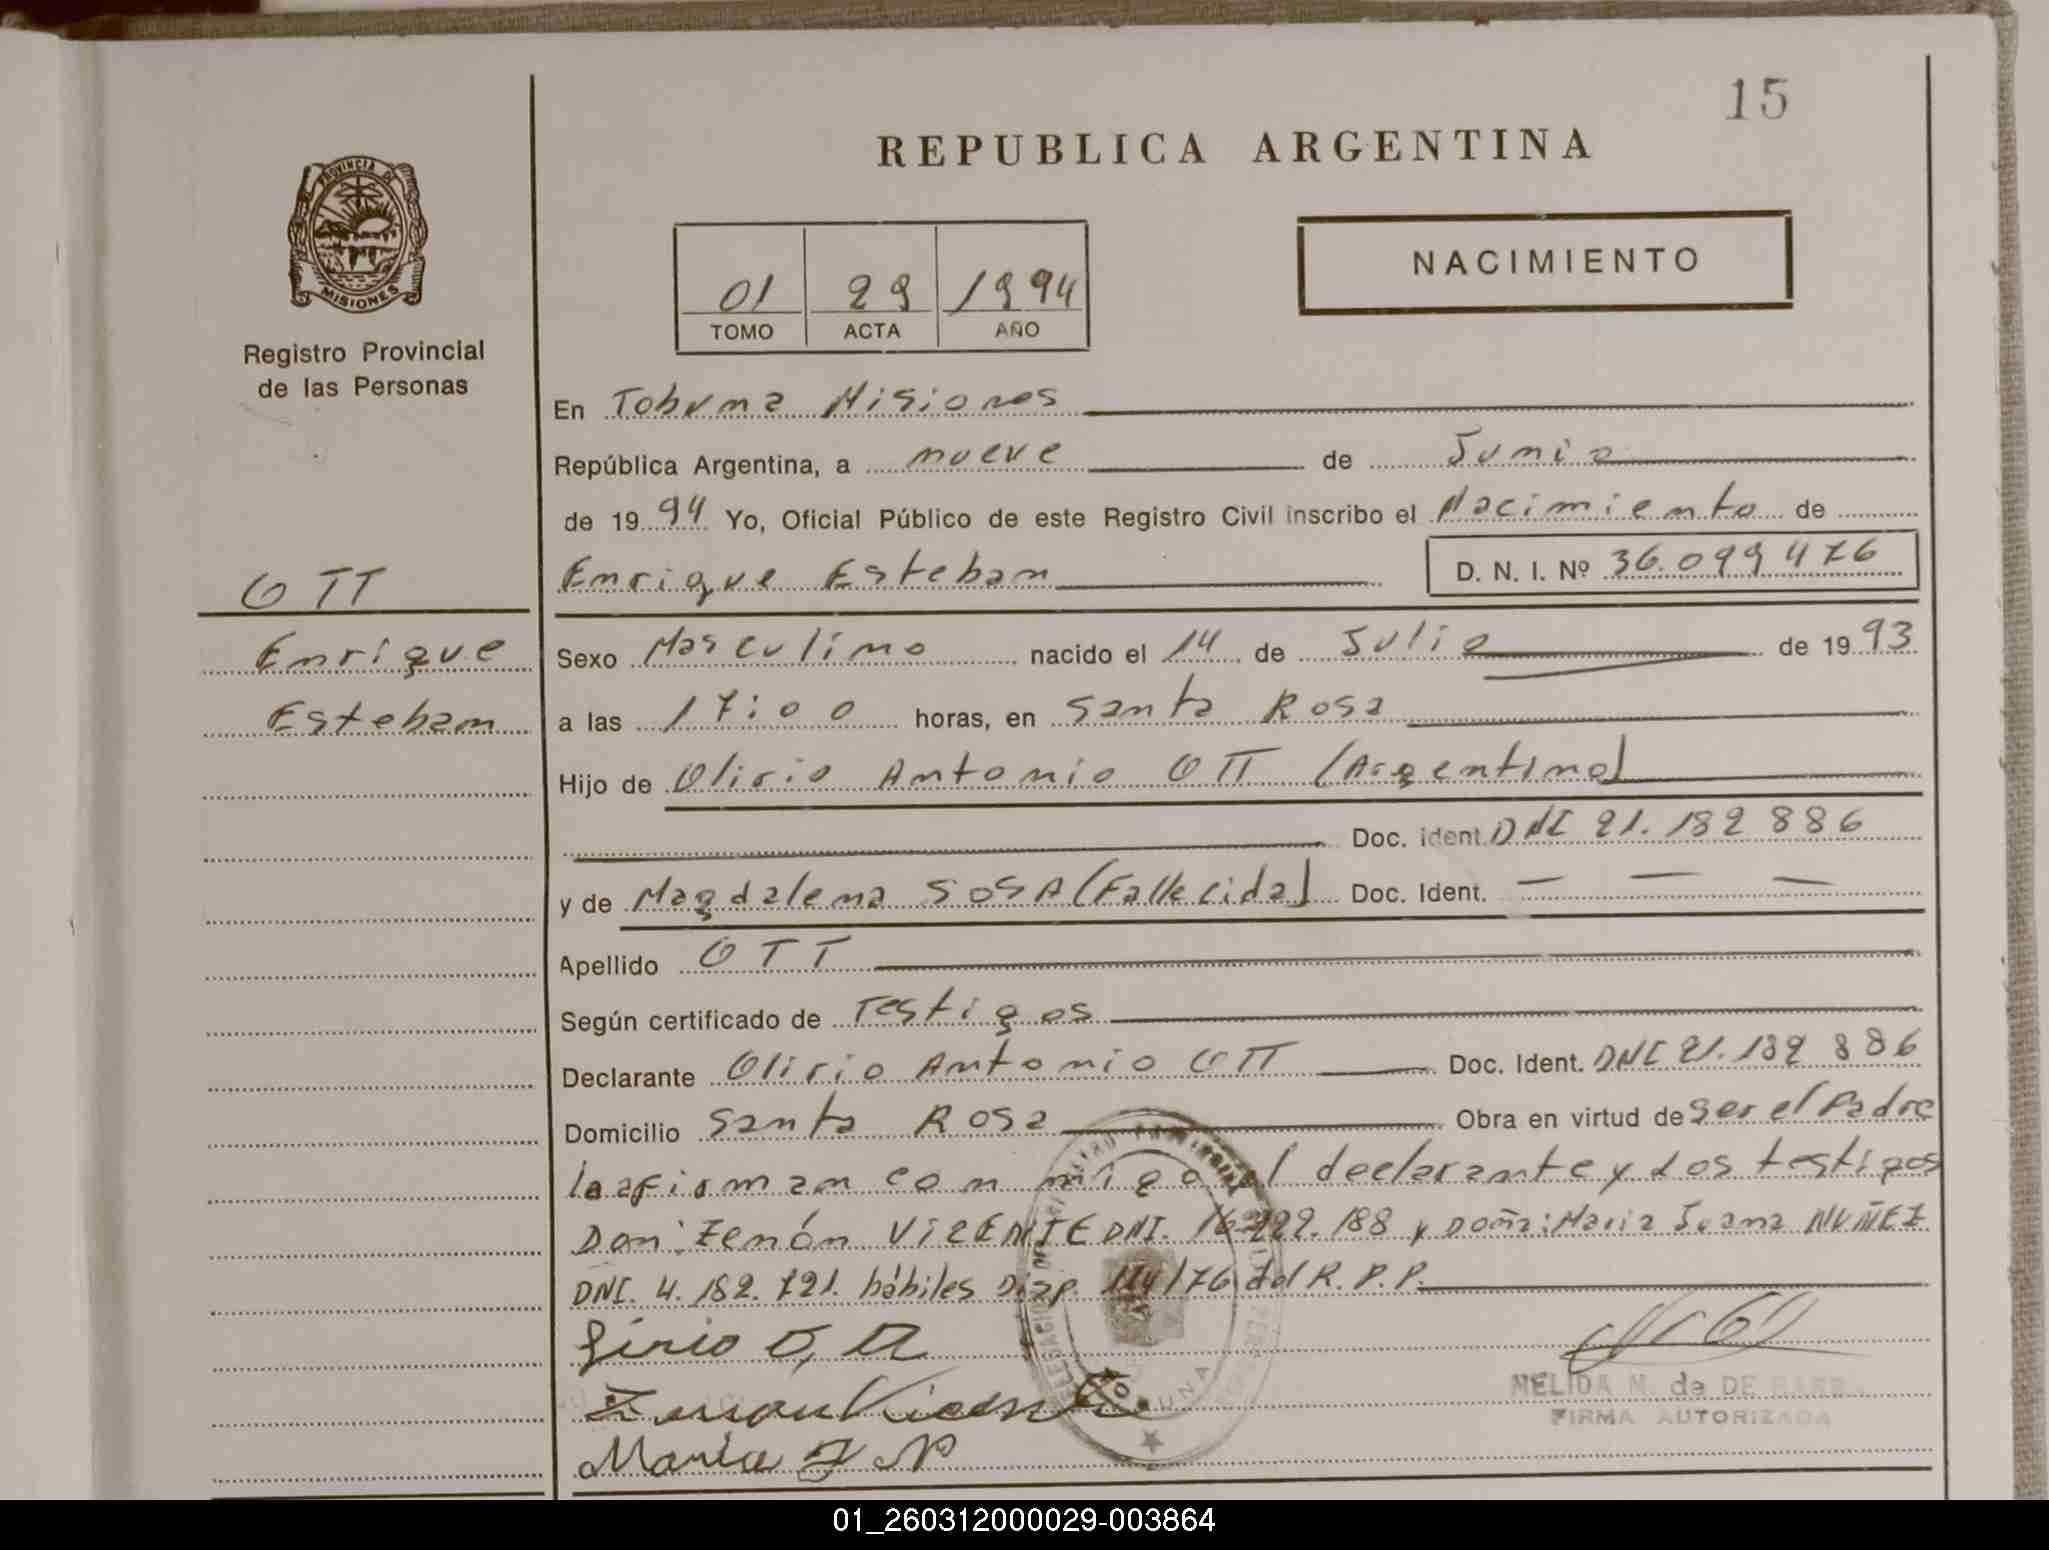 15
REPUBLICA ARGENTINA
PROVINCIA DE
MISIONES
Registro Provincial
de las Personas
NACIMIENTO
01 29 1994
TOMO ACTA AÑO
En Tobuna Misiones
República Argentina, a nueve de Junio
de 1994 Yo, Oficial Público de este Registro Civil inscribo el Nacimiento de
Enrique Esteban D. N. I. Nº 36.099 476
OTT
Enrique
Esteban
Sexo Masculino nacido el 14 de Julio de 1993
a las 17:00 horas, en Santa Rosa
Hijo de Olirio Antonio OTT (Argentino)
Doc. ident. DNI 21.182 886
y de Magdalena SOSA (Fallecida) Doc. Ident. — — —
Apellido OTT
Según certificado de Testigos
Declarante Olirio Antonio OTT Doc. Ident. DNI 21.182 886
Domicilio Santa Rosa Obra en virtud de ser el Padre
la firman con migo el declarante y los testigos
Don: Zenón VICENTE DNI. 16.222.188 y Doña: Maria Juana NUÑEZ
DNI. 4.182.721. hábiles Disp. 114/76 del R.P.P.
Zenon Vicente
Maria J N
NELIDA M. de
FIRMA AUTORIZADA
01_260312000029-003864